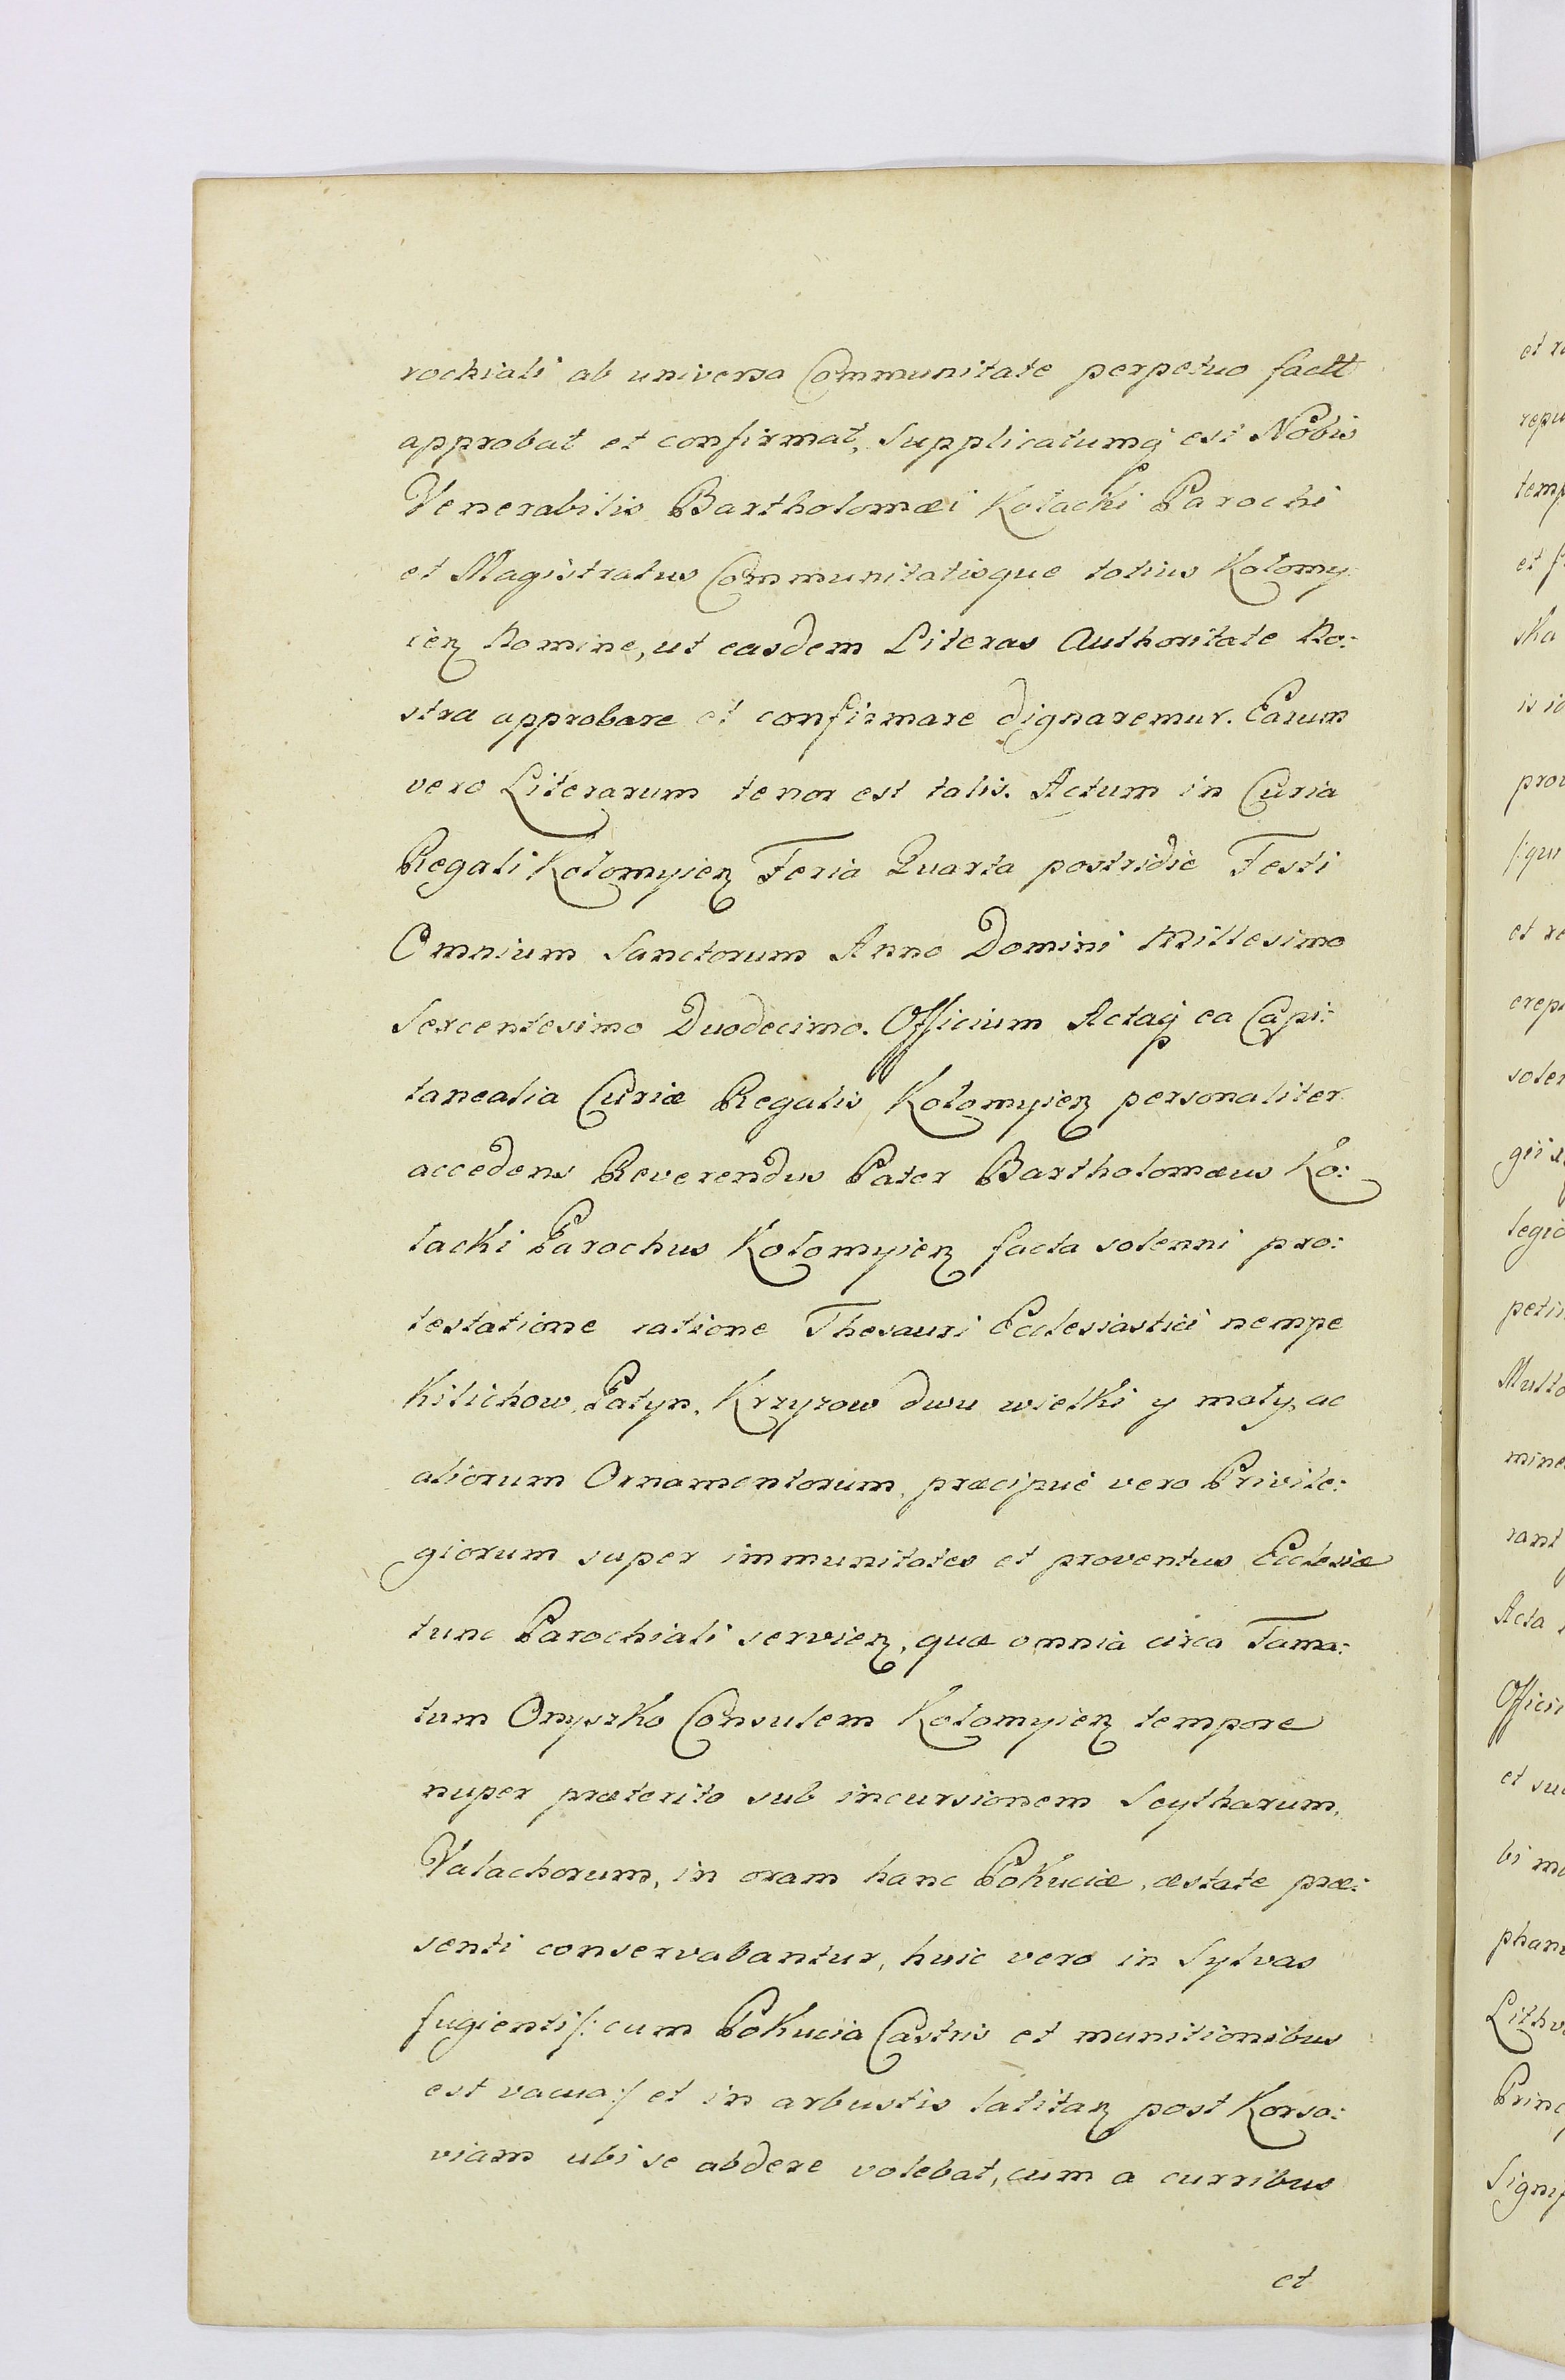 rochiali ab universa Communitate perpetuo factt
approbat et confirmat, Supplicatumq est Nobis
Venerabilis Bartholomæi Kołacki Parochi
et Magistratus Communitatisque totius Kołomy
ien Nomine, ut easdem Literas Authoritate No:
stra approbare et confirmare dignaremur. Earum
vero Literarum tenor est talis. Actum in Curia
Regali Kołomyien Feria Quarta postridie Festi
Omnium Sanctorum Anno Domini Millesimo
Sexcentesimo Duodecimo. Officium Actaq ea Capi:
tanealia Curiæ Regalis Kołomyien personaliter
accedens Reverendus Pater Bartholomæus Ko:
łacki Parochus Kołomyien facta solenni pro:
testatione ratione Thesauri Ecclesiastici nempe
Kilichow, Patyn, Krzyzow dwu wielki y mały, ac
aliorum Ornamentorum, præcipue vero Privile:
giorum super immunitates et proventus Ecclesiæ
tunc Parochiali servien, quæ omnia circa Fama:
tum Onyszko Consulem Kołomyien tempore
nuper præterito sub incursionem Scytharum,
Valachorum, in oram hanc Pokuciæ, æstate præ:
senti conservabantur, huic vero in Sylvas
fugienti /: cum Pokucia Castris et munitionibus
est vacua :/ et in arbustis latitan post Korso:
viam ubi se abdere volebat, cum a curribus
et
et
temp
et
ska
et
Acta
et
bi
Princ